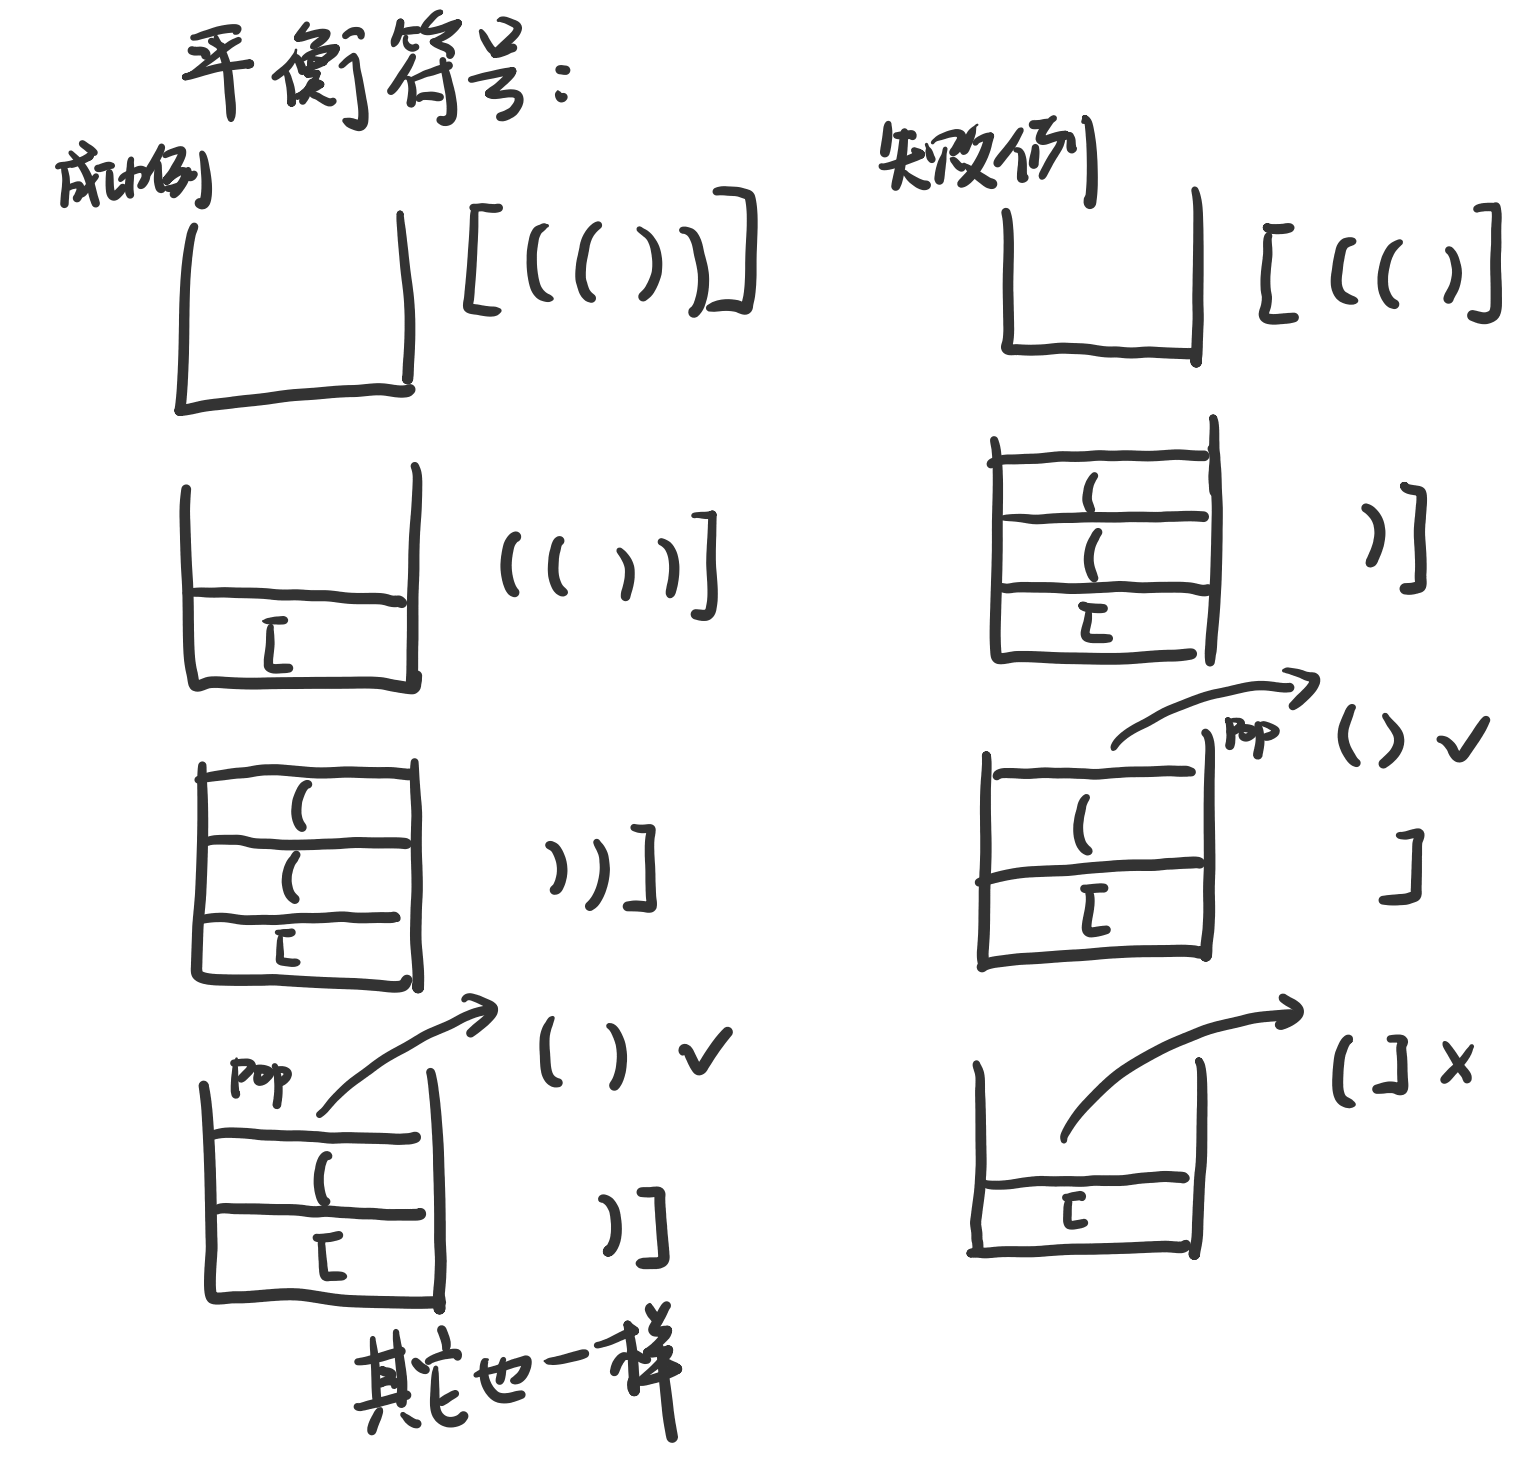 平衡符号：
成功例
[(())]
[
(())]
(
(
[
))]
pop
( ) ✓
(
[
)]
其它也一样
失败例
[(()]
(
(
[
)]
pop
( ) ✓
(
[
]
( ] ×
[